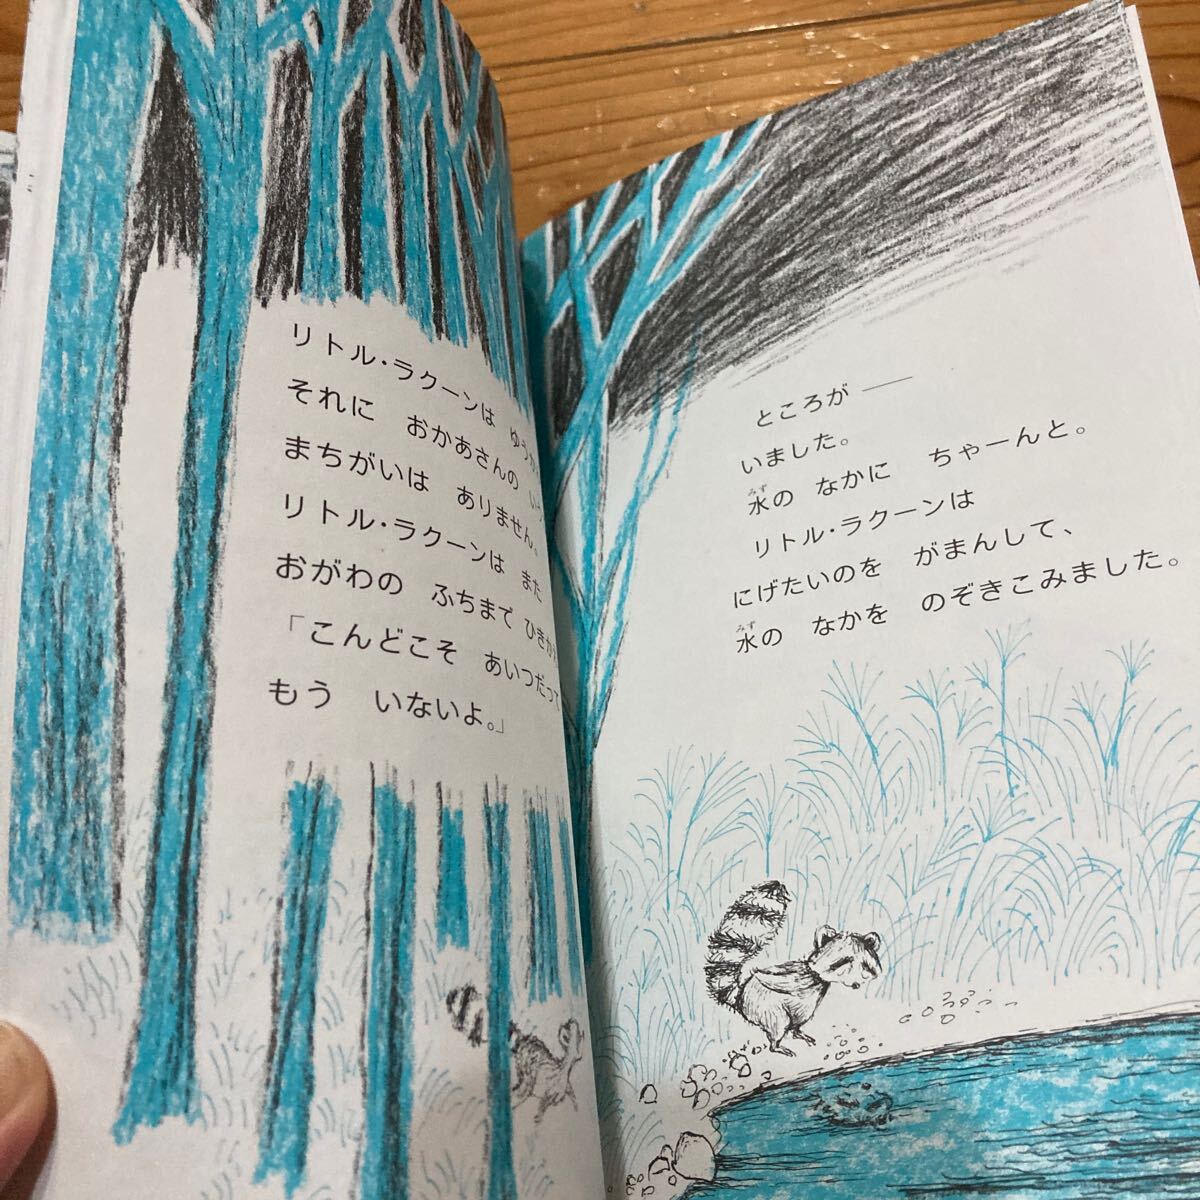 リトル・ラクーンは
それに　おかあさんの
まちがいは　ありません。
リトル・ラクーンは　また
おがわの　ふちまで
「こんどこそ　あいつだって
もう　いないよ。」
ところが——
いました。
水の　なかに　ちゃーんと。
リトル・ラクーンは
にげたいのを　がまんして、
水の　なかを　のぞきこみました。